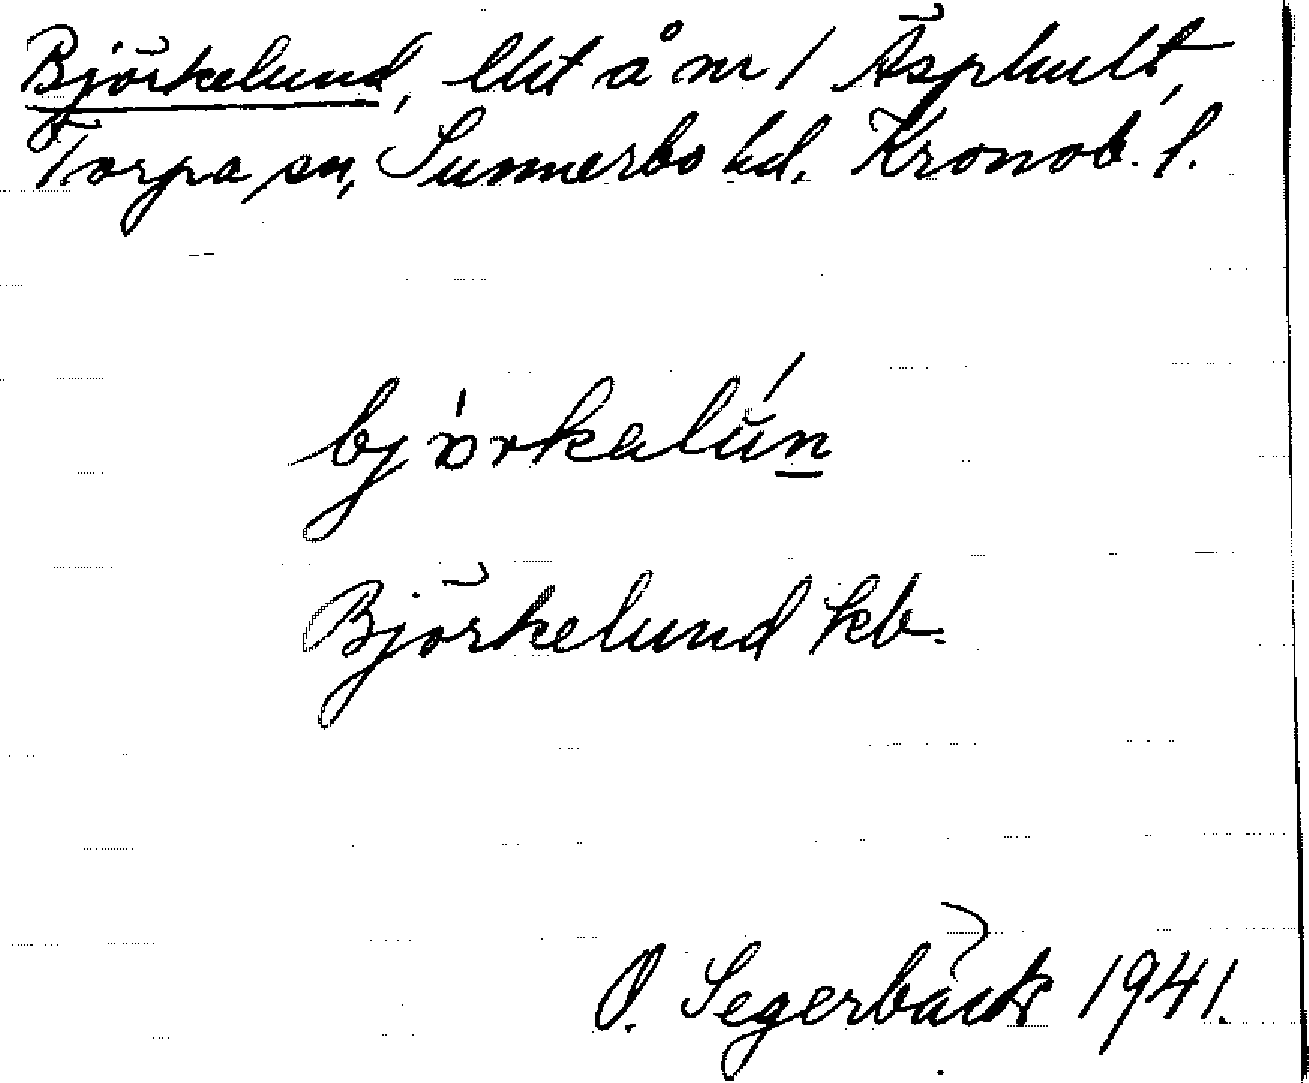 Björkelund, lht å nr 1 Äsphult,
Torpa sn, Sunnerbo hd. Kronob. l.
björkalún
Björkelund kb.
O. Segerbäck 1941.